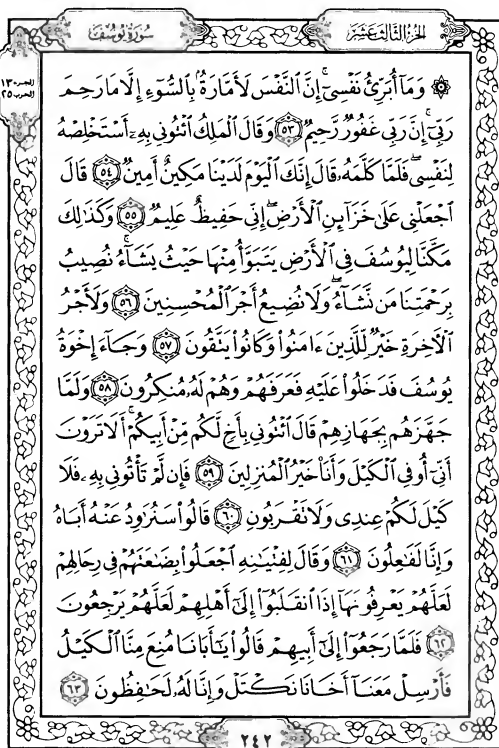 الجزء الثالث عشر
سورة يوسف
الجزء ١٣
الحزب ٢٥
۞ وَمَآ أُبَرِّئُ نَفْسِىٓۚ إِنَّ ٱلنَّفْسَ لَأَمَّارَةُۢ بِٱلسُّوٓءِ إِلَّا مَا رَحِمَ
رَبِّىٓۚ إِنَّ رَبِّى غَفُورٌ رَّحِيمٌ ٥٣ وَقَالَ ٱلْمَلِكُ ٱئْتُونِى بِهِۦٓ أَسْتَخْلِصْهُ
لِنَفْسِىۖ فَلَمَّا كَلَّمَهُۥ قَالَ إِنَّكَ ٱلْيَوْمَ لَدَيْنَا مَكِينٌ أَمِينٌ ٥٤ قَالَ
ٱجْعَلْنِى عَلَىٰ خَزَآئِنِ ٱلْأَرْضِۖ إِنِّى حَفِيظٌ عَلِيمٌ ٥٥ وَكَذَٰلِكَ
مَكَّنَّا لِيُوسُفَ فِى ٱلْأَرْضِ يَتَبَوَّأُ مِنْهَا حَيْثُ يَشَآءُۚ نُصِيبُ
بِرَحْمَتِنَا مَن نَّشَآءُۖ وَلَا نُضِيعُ أَجْرَ ٱلْمُحْسِنِينَ ٥٦ وَلَأَجْرُ
ٱلْءَاخِرَةِ خَيْرٌ لِّلَّذِينَ ءَامَنُوا۟ وَكَانُوا۟ يَتَّقُونَ ٥٧ وَجَآءَ إِخْوَةُ
يُوسُفَ فَدَخَلُوا۟ عَلَيْهِ فَعَرَفَهُمْ وَهُمْ لَهُۥ مُنكِرُونَ ٥٨ وَلَمَّا
جَهَّزَهُم بِجَهَازِهِمْ قَالَ ٱئْتُونِى بِأَخٍ لَّكُم مِّنْ أَبِيكُمْۚ أَلَا تَرَوْنَ
أَنِّىٓ أُوفِى ٱلْكَيْلَ وَأَنَا۠ خَيْرُ ٱلْمُنزِلِينَ ٥٩ فَإِن لَّمْ تَأْتُونِى بِهِۦ فَلَا
كَيْلَ لَكُمْ عِندِى وَلَا تَقْرَبُونِ ٦٠ قَالُوا۟ سَنُرَٰوِدُ عَنْهُ أَبَاهُ
وَإِنَّا لَفَٰعِلُونَ ٦١ وَقَالَ لِفِتْيَٰنِهِ ٱجْعَلُوا۟ بِضَٰعَتَهُمْ فِى رِحَالِهِمْ
لَعَلَّهُمْ يَعْرِفُونَهَآ إِذَا ٱنقَلَبُوٓا۟ إِلَىٰٓ أَهْلِهِمْ لَعَلَّهُمْ يَرْجِعُونَ
٦٢ فَلَمَّا رَجَعُوٓا۟ إِلَىٰٓ أَبِيهِمْ قَالُوا۟ يَٰٓأَبَانَا مُنِعَ مِنَّا ٱلْكَيْلُ
فَأَرْسِلْ مَعَنَآ أَخَانَا نَكْتَلْ وَإِنَّا لَهُۥ لَحَٰفِظُونَ ٦٣
٢٤٢